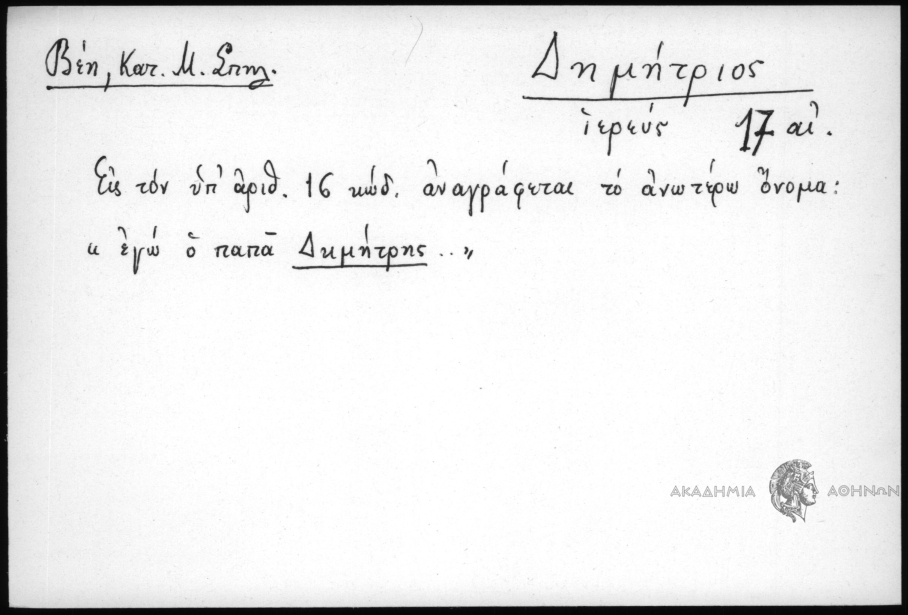 Βέη, Κατ. Μ. Σπηλ.
Δημήτριος
ἱερεύς 17 αἰ.
Εἰς τόν ὑπ' ἀριθ. 16 κώδ. ἀναγράφεται τό ἀνωτέρω ὄνομα:
« ἐγώ ὁ παπᾶ Δημήτρης .. »
ΑΚΑΔΗΜΙΑ ΑΘΗΝΩΝ